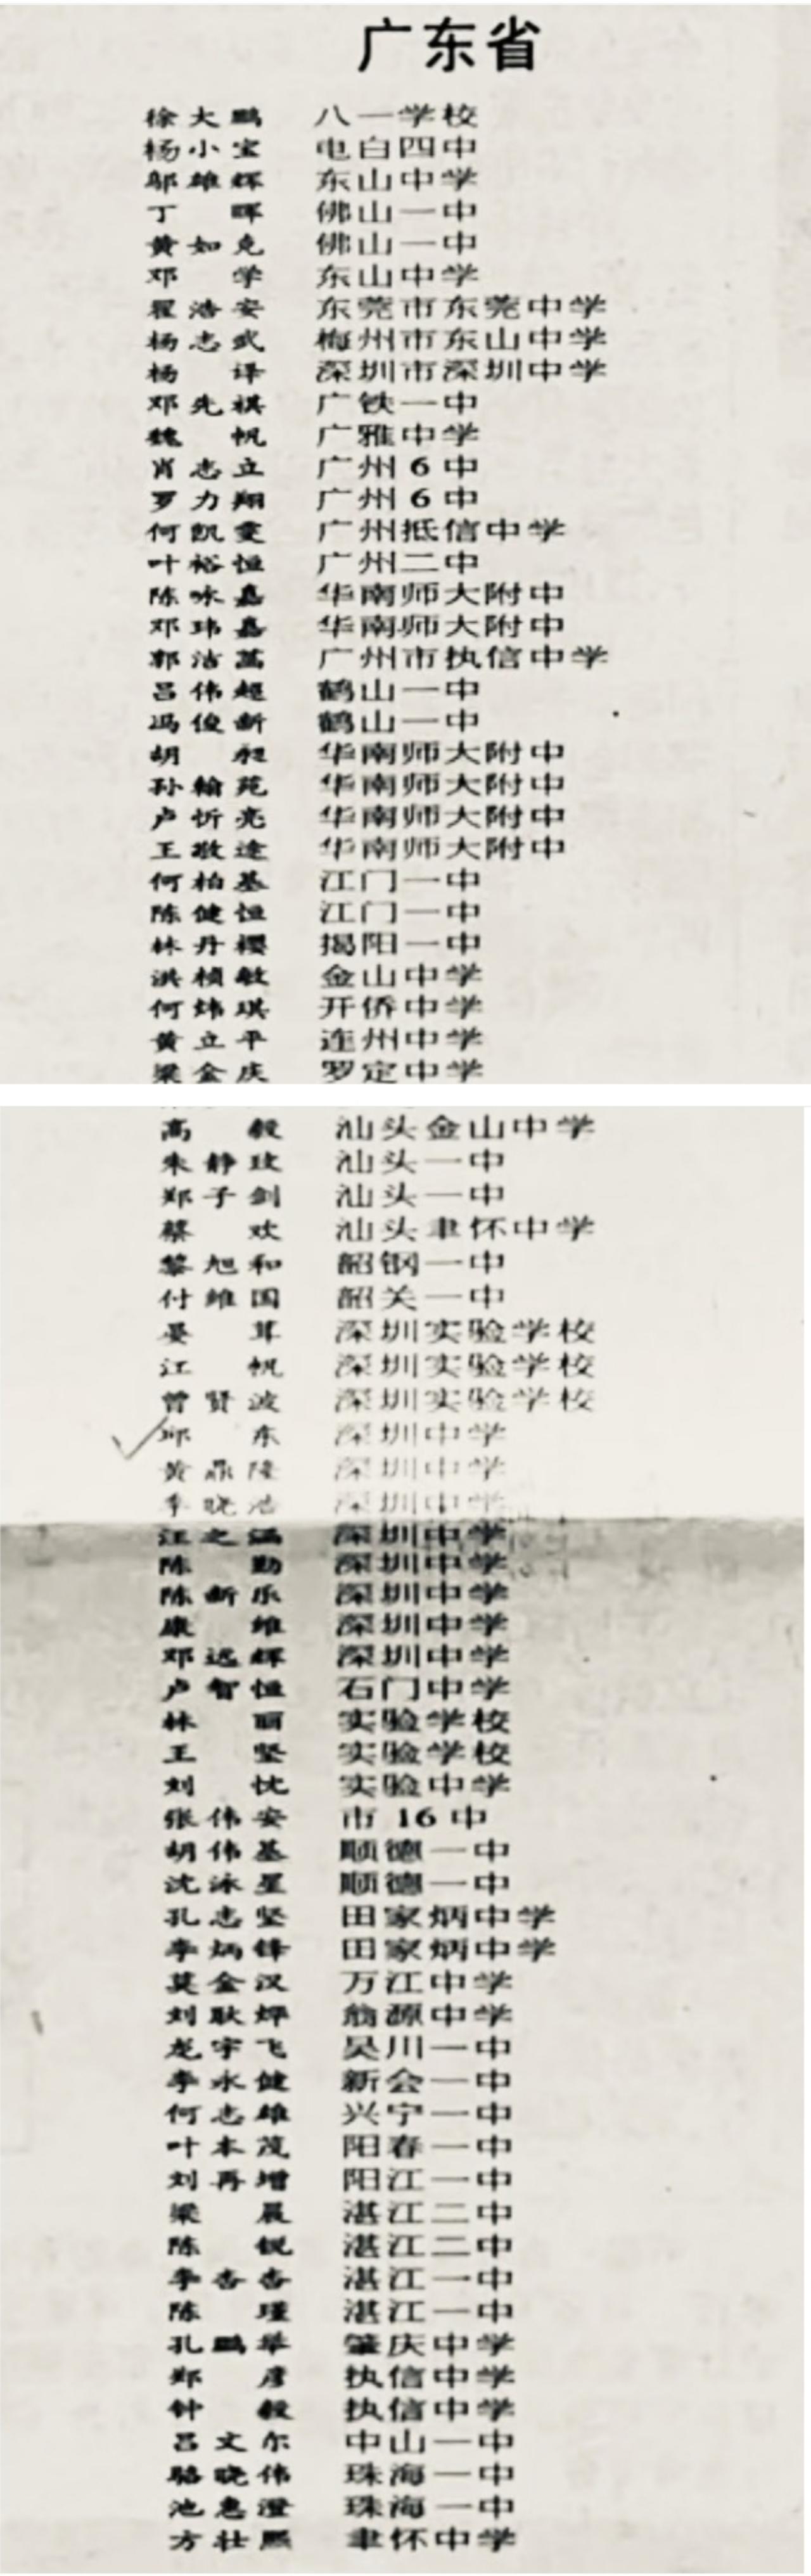 广东省
徐大鹏 八一学校
杨小宝 电白四中
邬雄辉 东山中学
丁晖 佛山一中
黄如克 佛山一中
邓学 东山中学
翟浩安 东莞市东莞中学
杨志武 梅州市东山中学
杨译 深圳市深圳中学
邓先祺 广铁一中
魏帆 广雅中学
肖志立 广州6中
罗力翔 广州6中
何凯雯 广州抵信中学
叶裕恒 广州二中
陈咏嘉 华南师大附中
邓玮嘉 华南师大附中
郭洁 广州市执信中学
吕伟超 鹤山一中
冯俊新 鹤山一中
胡昶 华南师大附中
孙翰苑 华南师大附中
卢忻亮 华南师大附中
王敬途 华南师大附中
何柏基 江门一中
陈健恒 江门一中
林丹樱 揭阳一中
洪桢敏 金山中学
何炜琪 开侨中学
黄立平 连州中学
梁金庆 罗定中学
高毅 汕头金山中学
朱静玫 汕头一中
郑子剑 汕头一中
蔡欢 汕头聿怀中学
黎旭和 韶钢一中
付维国 韶关一中
晏茸 深圳实验学校
江帆 深圳实验学校
曾贤波 深圳实验学校
邱东 深圳中学
黄鼎隆 深圳中学
李晓浩 深圳中学
汪之涵 深圳中学
陈勤 深圳中学
陈新乐 深圳中学
康维 深圳中学
邓远辉 深圳中学
卢智恒 石门中学
林丽 实验学校
王坚 实验学校
刘忱 实验中学
张伟安 市16中
胡伟基 顺德一中
沈泳星 顺德一中
孔志坚 田家炳中学
李炳锋 田家炳中学
莫金汉 万江中学
刘耿烨 翁源中学
龙宇飞 吴川一中
李永健 新会一中
何志雄 兴宁一中
叶本茂 阳春一中
刘再增 阳江一中
梁晨 湛江二中
陈锐 湛江二中
李杏杏 湛江一中
陈瑾 湛江一中
孔鹏举 肇庆中学
郑彦 执信中学
钟毅 执信中学
吕文尔 中山一中
骆晓伟 珠海一中
池惠澄 珠海一中
方壮熙 聿怀中学